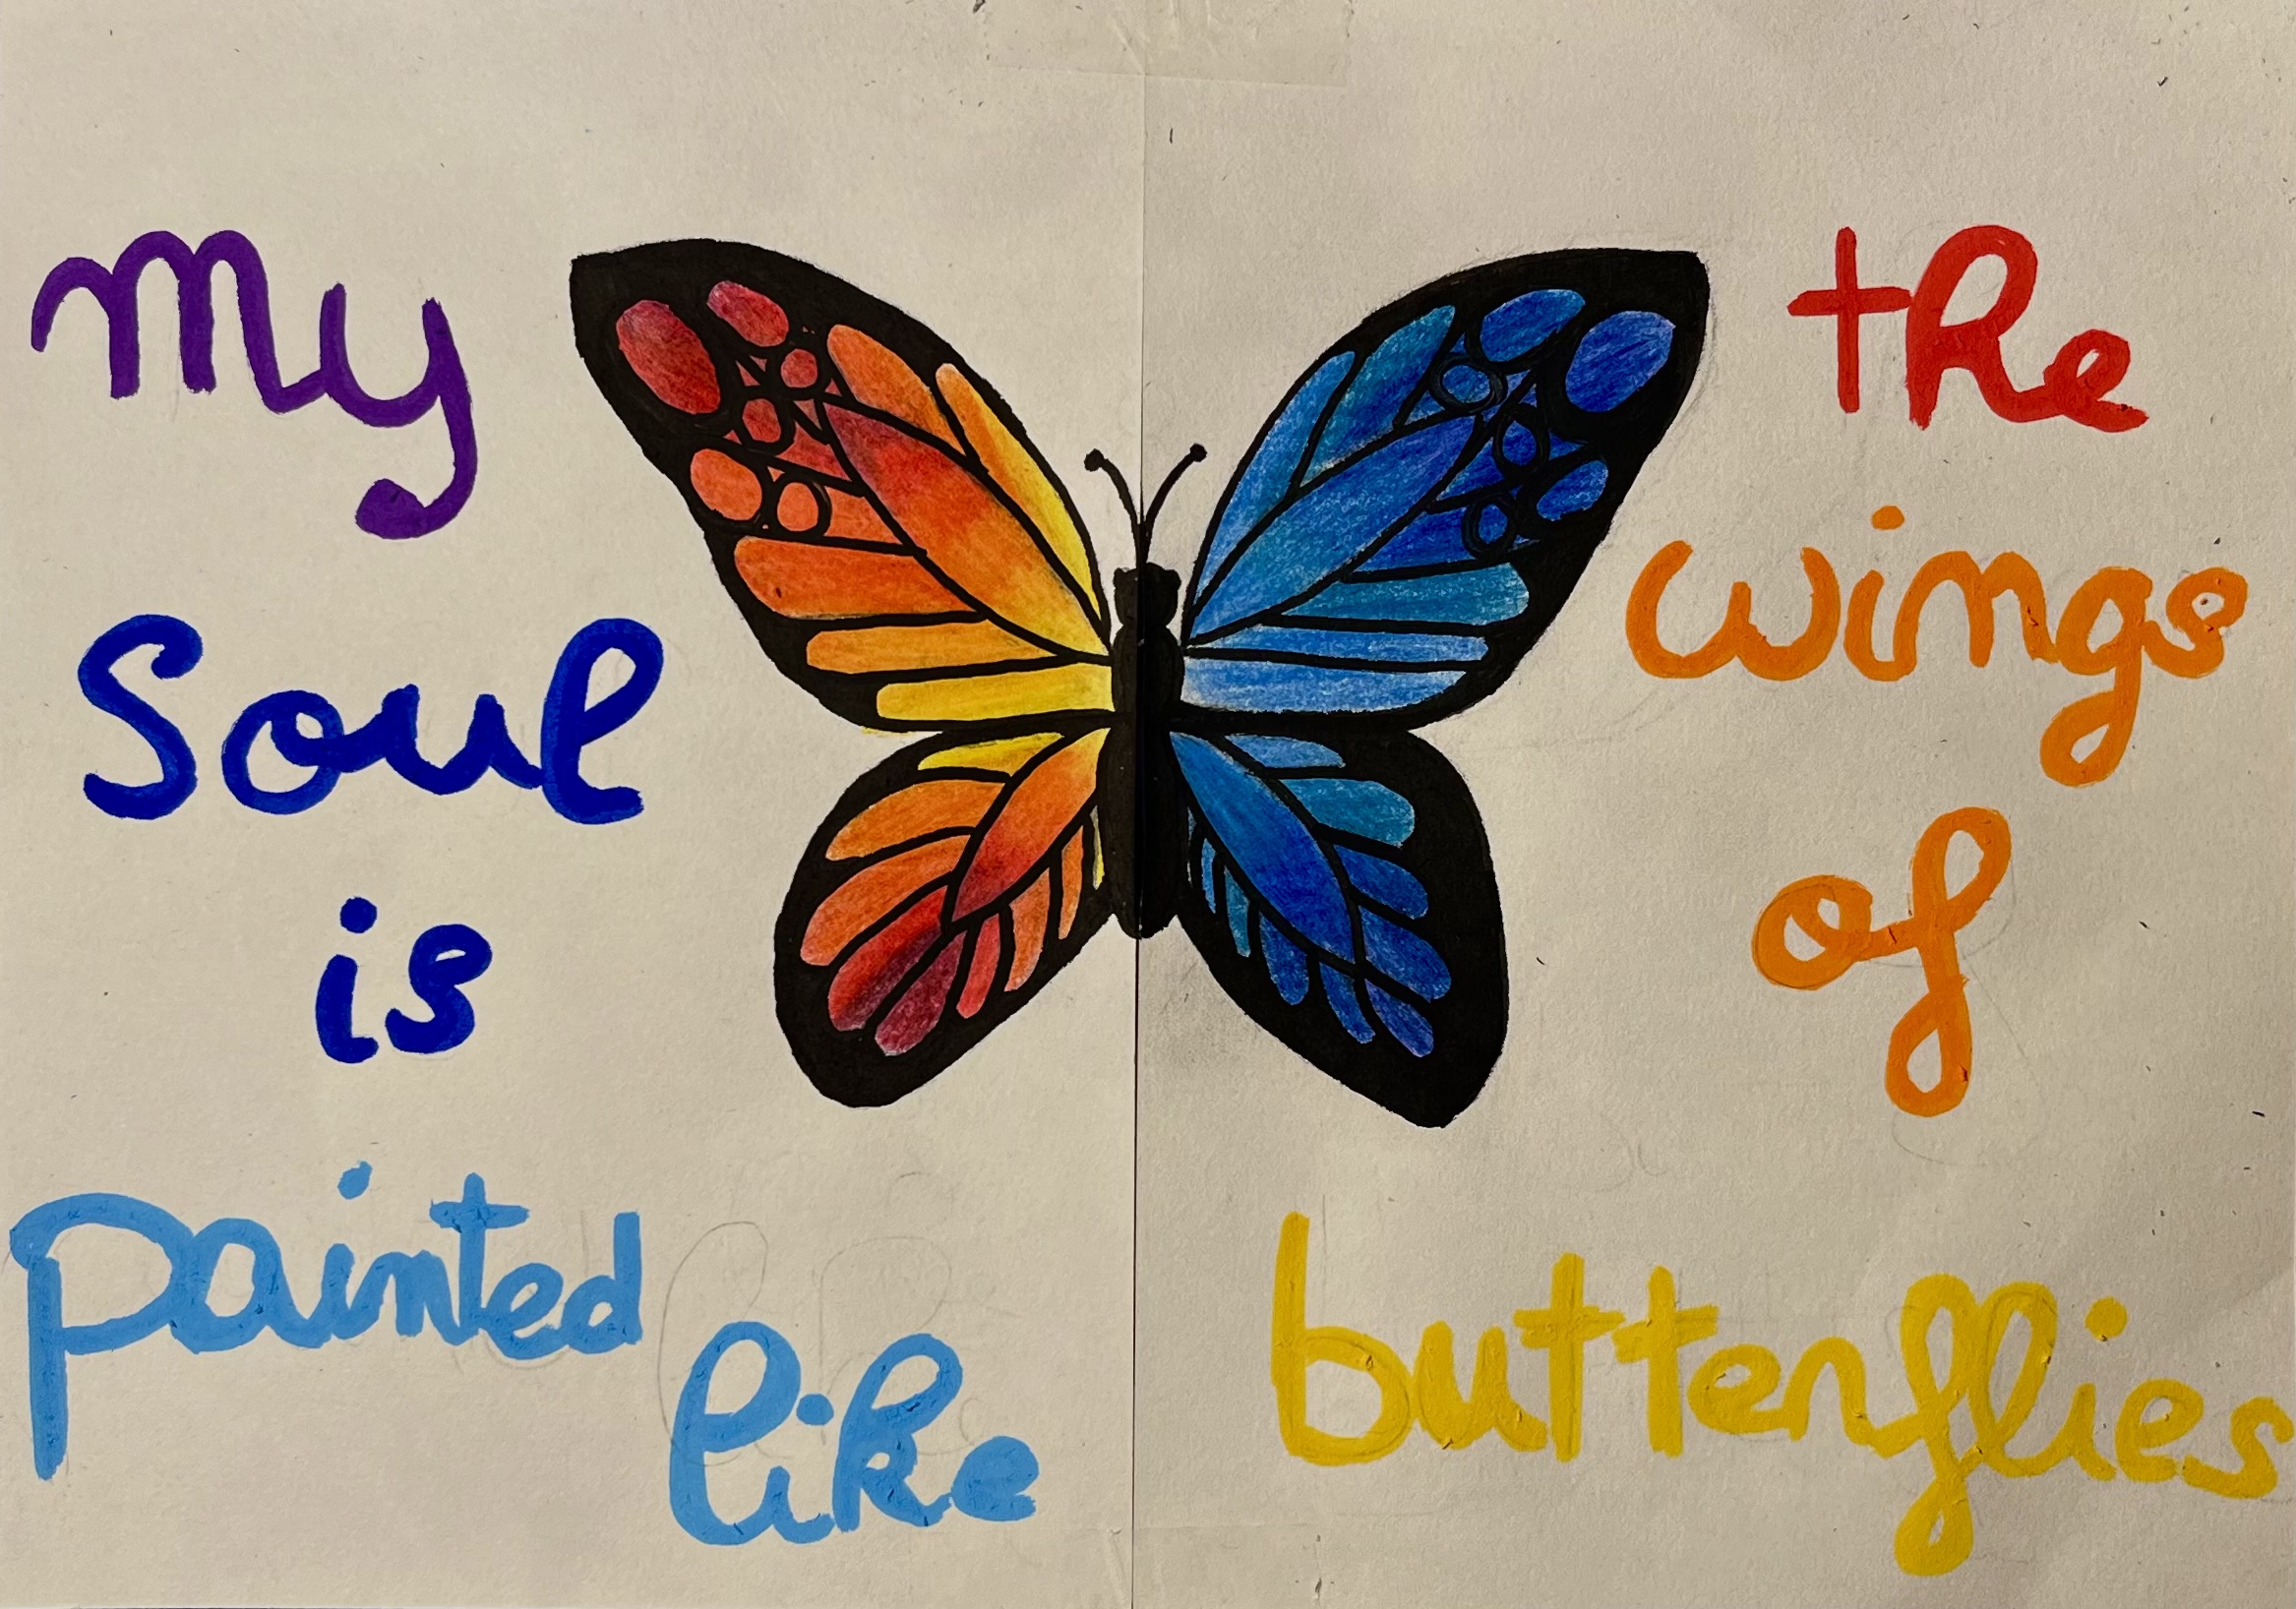 My
Soul
is
painted
like
the
wings
of
butterflies